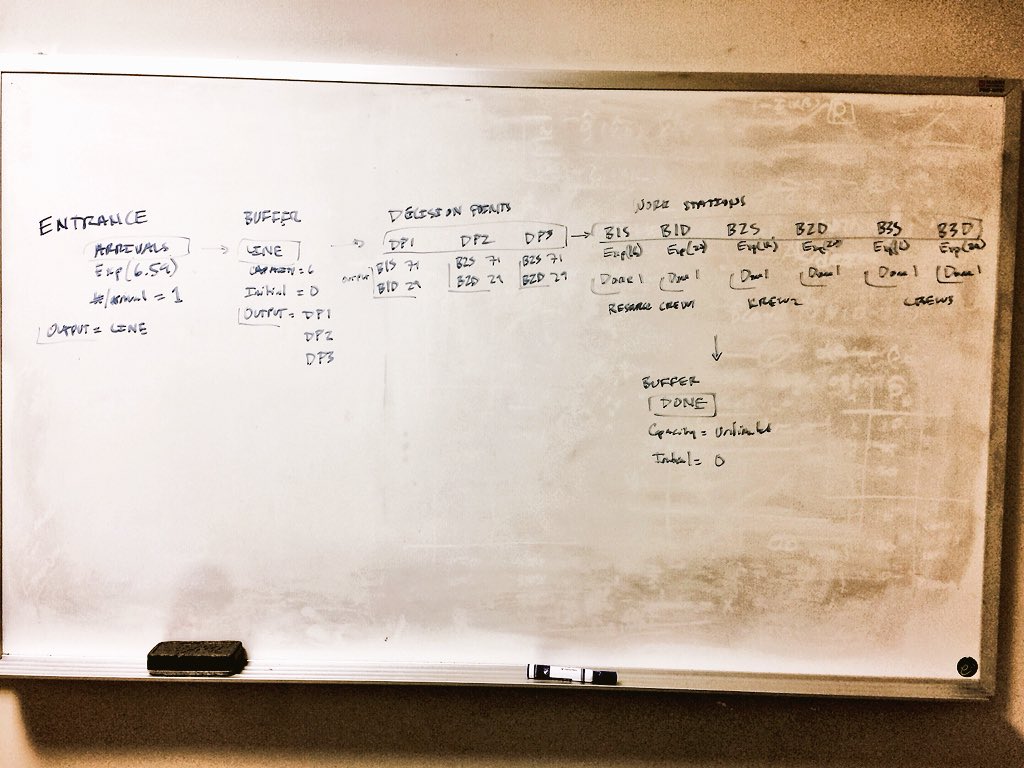 ENTRANCE
ARRIVALS
Exp(6.59)
#/arrival = 1
OUTPUT = LINE
BUFFER
LINE
CAPACITY = 6
Initial = 0
OUTPUT = DP1
DP2
DP3
DECISION POINTS
DP1 DP2 DP3
OUTPUT
B1S 71 B2S 71 B2S 71
B1D 29 B2D 29 B2D 29
WORK STATIONS
B1S B1D B2S B2D B3S B3D
Done 1 Done 1 Done 1 Done 1 Done 1 Done 1
CREW1 CREW2 CREW3
BUFFER
DONE
Capacity = Unlimited
Initial = 0